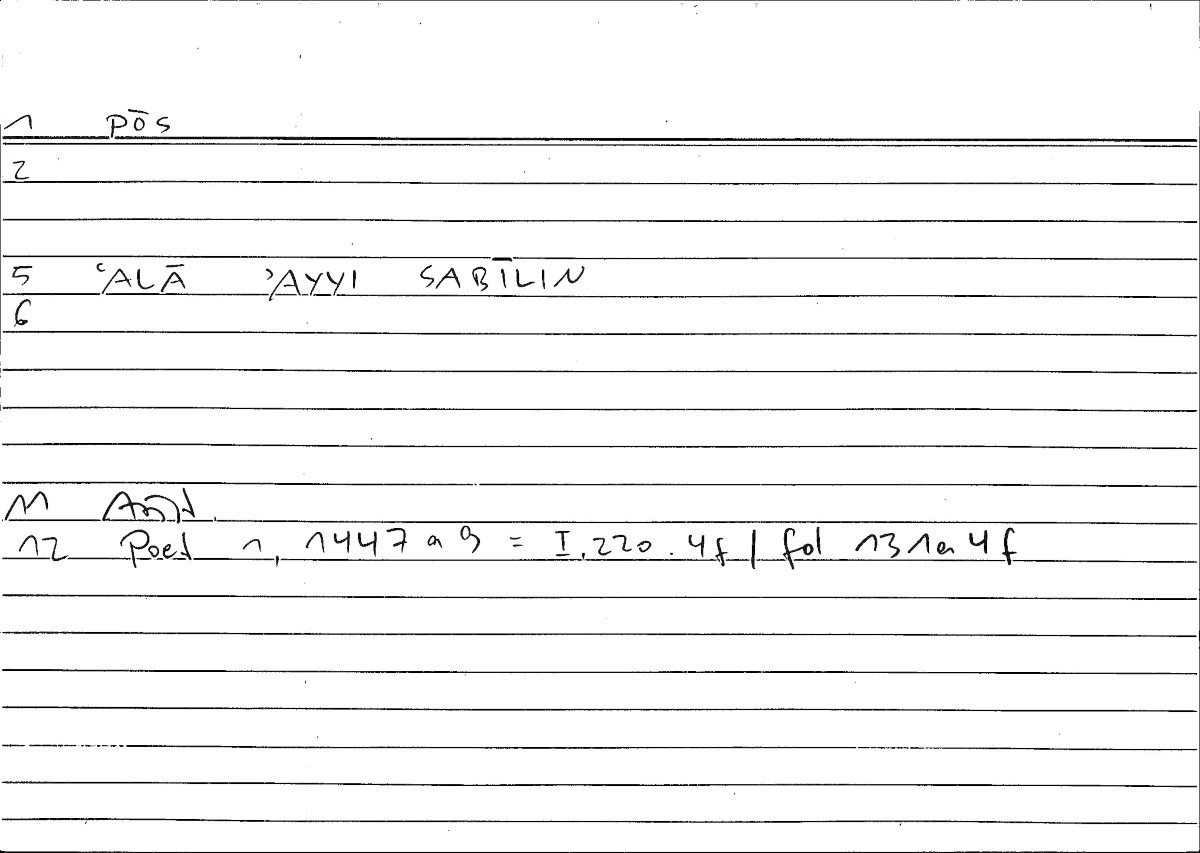 1 pōs
2
5 ʿALĀ ʾAYYI SABĪLIN
6
11 Arist.
12 Poet 1, 1447 a 9 = I, 220. 4f / fol 131a 4f